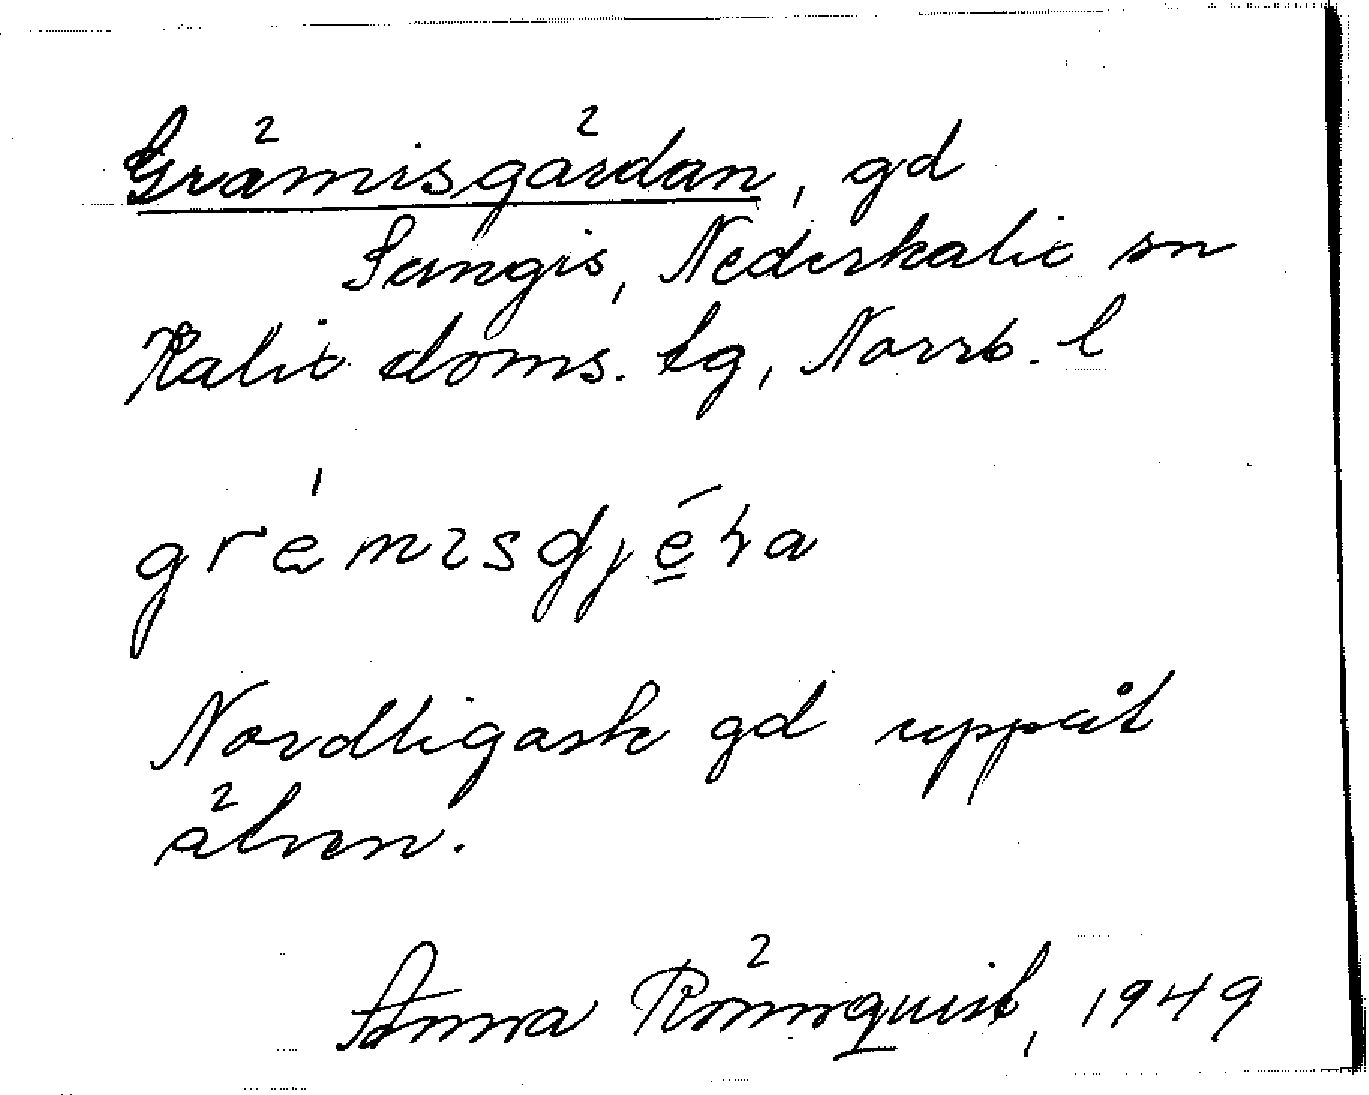 Grämisgärdan, gd
Sangis, Nederkalix sn
Kalix doms. tg, Norrb. l
gremisgjéra
Nordligask gd uppåt
älven.
Anna Rönnquist, 1949